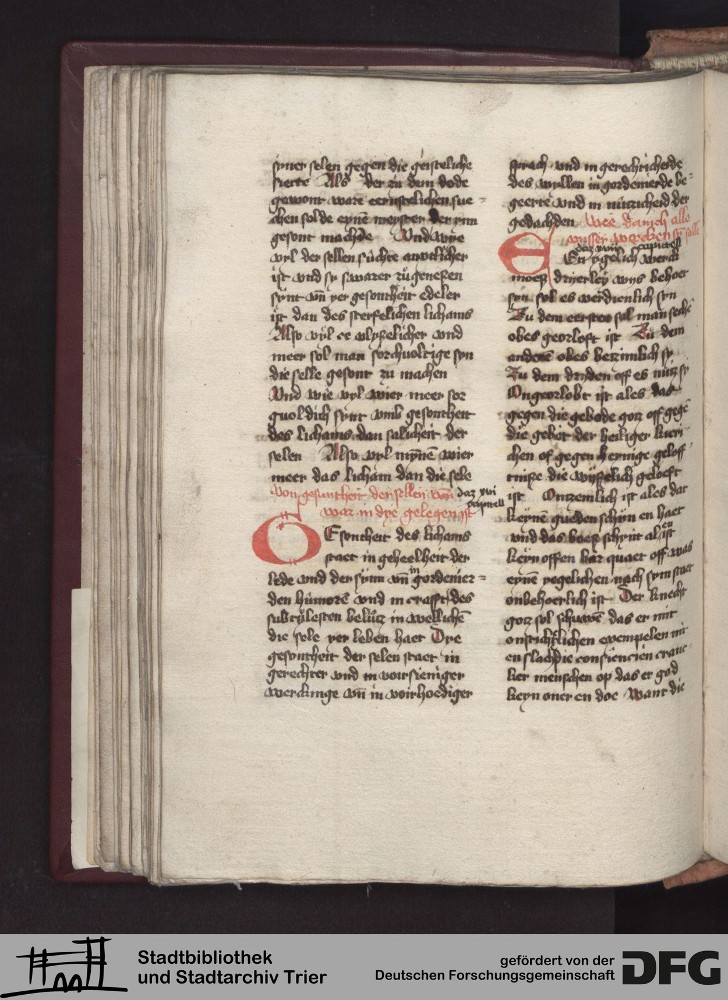 syner selen gegen die geisteliche
Als der zu dem dode
gewont ware eernstelichen sue=
chen solde eynē meyster der ym
gesont machde Vnd wye
vyl der sellen suchte
ist vnd sy swarer zu genesen
synt vñ yer gesontheit edeler
ist dan des sterfelichen lichams
Also vyl ee vlyzelicher vnd
meer sol man sorchuoltige syn
die selle gesont zu machen
Vnd wie vyl wier meer sor
quoldich synt vmb gesontheit
des lichams dan salicheit der
selen Also vyl mynnē wier
meer das licham dan die sele
von gesuntheit der sellen vnd daz xvi
war in dye gelegen ist capittell
GEsontheit des lichams
staet in geheelheit der
lede vnd der synn vñ in gordenier=
den humorē vnd in crafft des
subtylesten belutz in wellichē
die sele yer leben haet Dye
gesontheit der selen staet in
gerechter vnd in voirsieniger
werckinge vñ in voirhoediger
sprach vnd in gerechticheide
des wyllen in gordenierde be=
geerte vnd in nutzicheid der
gedachden wee danich alle
sy salle
daz xvii capittell
En ygelich werck
moesz dryerley wys behoer
syn sol es verdienlich syn
Zu dem eersten sal man
obes georloft ist Zu dem
anderē obes betzimlich sy
Zu dem dryden off es nutz sy
Ongeorlobt ist ales das
gegen die gebode gotz off gegē
die gebot der heiliger kier
chen of gegen eenige geloff
tnisze die wyszelich geloeft
ist Onzemlich ist ales dat
keynē guedē schyn en haet
vnd das boesz schynt al en ist
keyn offen bar quaet off was
eynē yegelichen nach sym staet
onbehoerlich ist Der knecht
gotz sol schuwē das er mit
onstichtlichen exempelen nit
en slae die consiencien cranc
ker menschen op das er god
keyn oneer en doe Want die
Stadtbibliothek
und Stadtarchiv Trier
gefördert von der
Deutschen Forschungsgemeinschaft
DFG